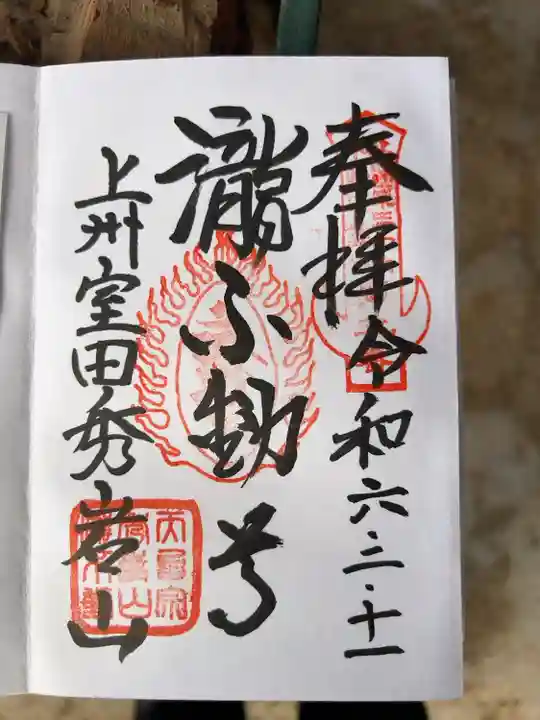 奉拝令和六・三・十一
瀧不動尊
上州室田秀岩山